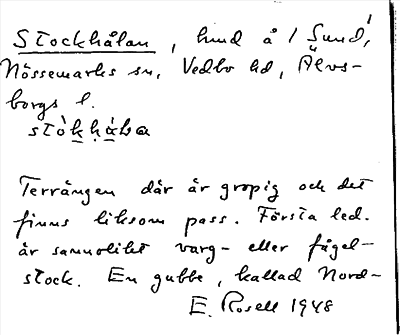 Stockhålan, hmd å 1 Sund,
Nössemarks sn, Vedbo hd, Älvs-
borgs l.
stòkhála
Terrängen där är gropig och det
finns liksom pass. Första led.
är sannolikt varg- eller fågel-
stock. En gubbe, kallad Nord-
E. Rosell 1948